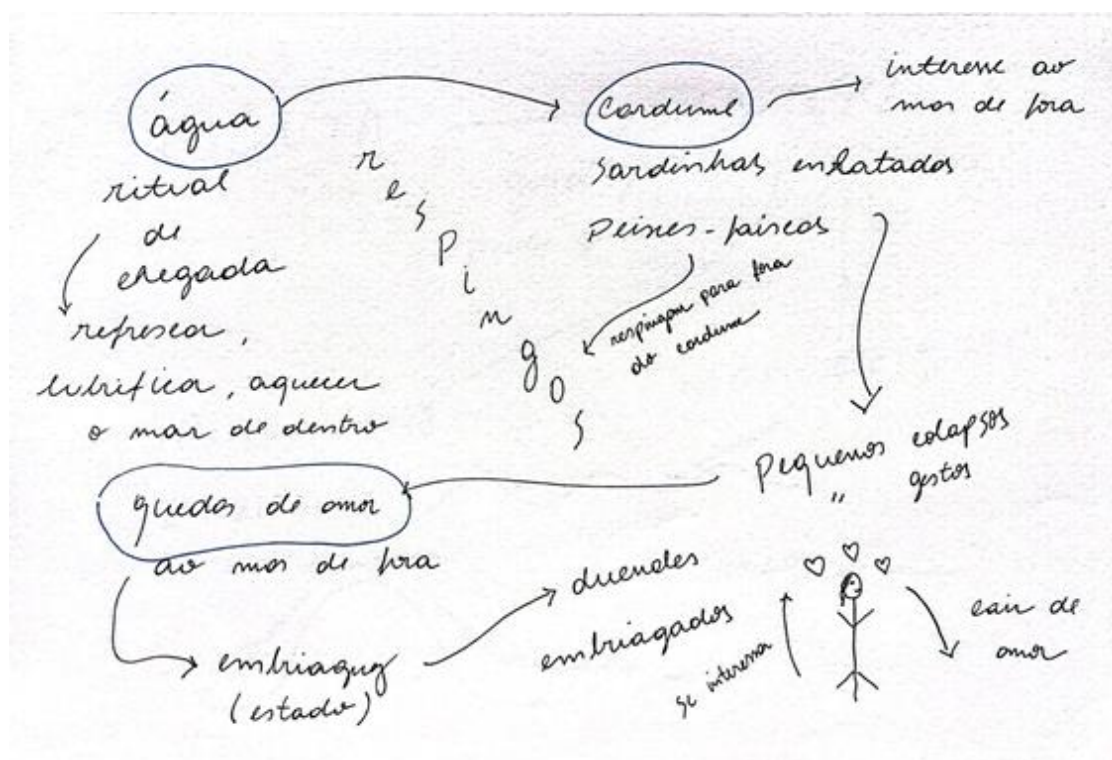 água
ritual
de
chegada
refrescar,
lubrificar, aquecer
o mar de dentro
respingos
Cardume
interesse ao
mar de fora
Sardinhas enlatadas
Peixes-faíscas
respingam para fora
do cardume
Pequenos colapsos
" gestos
quedas de amor
ao mar de fora
embriaguez
(estado)
duendes
embriagados
se interessar
cair de
amor